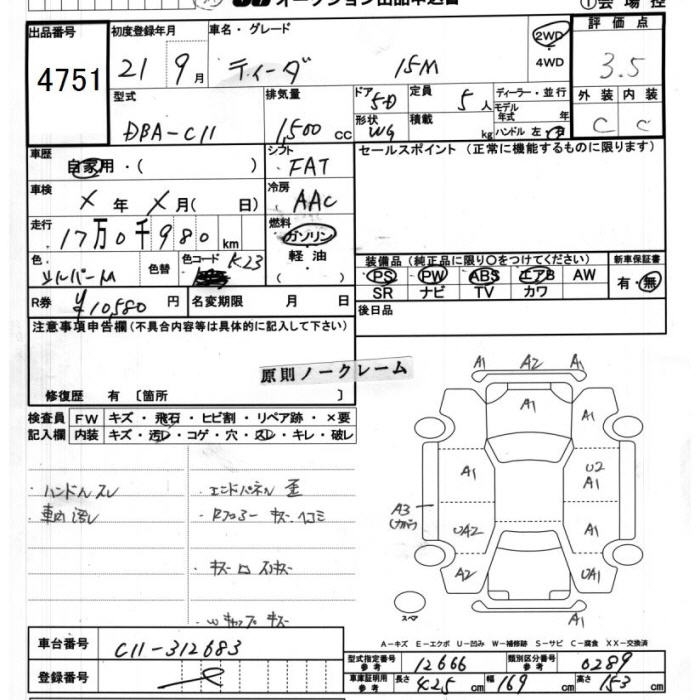 オークション出品申込書
①会場控
出品番号
4751
初度登録年月
21 9月
車名・グレード
ティーダ 15M
2WD
・
4WD
評価点
3.5
型式
DBA-C11
排気量
1,500 cc
ドア
5D
形状
WG
定員
5人
積載
kg
ディーラー・並行
モデル
年式 年
ハンドル 左・右
外装 内装
C C
車歴
自家用・( )
シフト
FAT
セールスポイント (正常に機能するものに限ります)
車検
X年 X月( 日)
冷房
AAC
走行
17万0千980km
燃料
ガソリン
軽油
( )
色
シルバーM
色替
色コード
K23
装備品 (純正品に限り○をつけてください)
PS PW ABS エアB AW
SR ナビ TV カワ
新車保証書
有・無
R券 ¥10,580円
名変期限 月 日
後日品
注意事項申告欄(不具合内容等は具体的に記入して下さい)
原則ノークレーム
修復歴 有〔箇所 〕
検査員
記入欄
FW キズ・飛石・ヒビ割・リペア跡・×要
内装 キズ・汚レ・コゲ・穴・スレ・キレ・破レ
・ハンドルスレ
・車内汚レ
・エンドパネル歪
・Rフロアー キズ ヘコミ
A1 A2 A1
A1
A1
A1
U2
A1
A3
UA2
A1
A2
UA1
A1
スペア
車台番号
C11-312683
登録番号
A-キズ E-エクボ U-凹み W-補修跡 S-サビ C-腐食 XX-交換済
型式指定番号
参考
12666
類別区分番号
参考
0289
車庫証明用
参考
長さ 425cm
幅 169cm
高さ 153cm